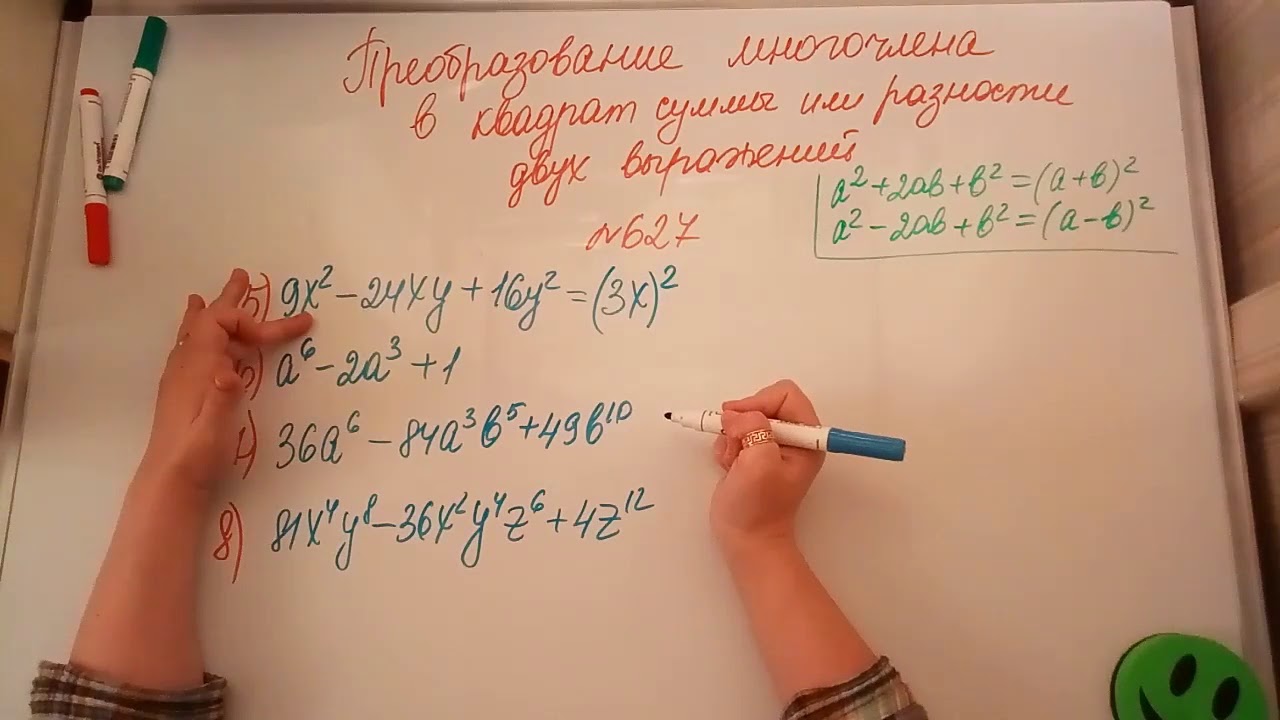 Преобразование многочлена
в квадрат суммы или разности
двух выражений
a² + 2ab + b² = (a + b)²
a² - 2ab + b² = (a - b)²
№627
5) 9x² - 24xy + 16y² = (3x)²
6) a⁶ - 2a³ + 1
36a⁶ - 84a³b⁵ + 49b¹⁰
8) 81x⁴y⁸ - 36x²y⁴z⁶ + 4z¹²